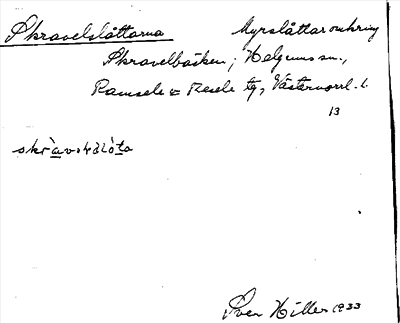 Skravelslåttarna Myrslåttar omkring
Skravelbäcken; Helgums sn.,
Ramsele o Resele tg, Västernorrl. l.
13
Sven Hiller 1933